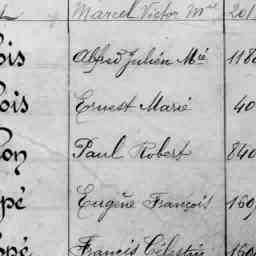 Marcel Victor Mie 201
ois Alfred Julien Mie 118
ois Ernest Marie 40
on Paul Robert 840
pé Eugène François 160
pé Francis Célestin 160